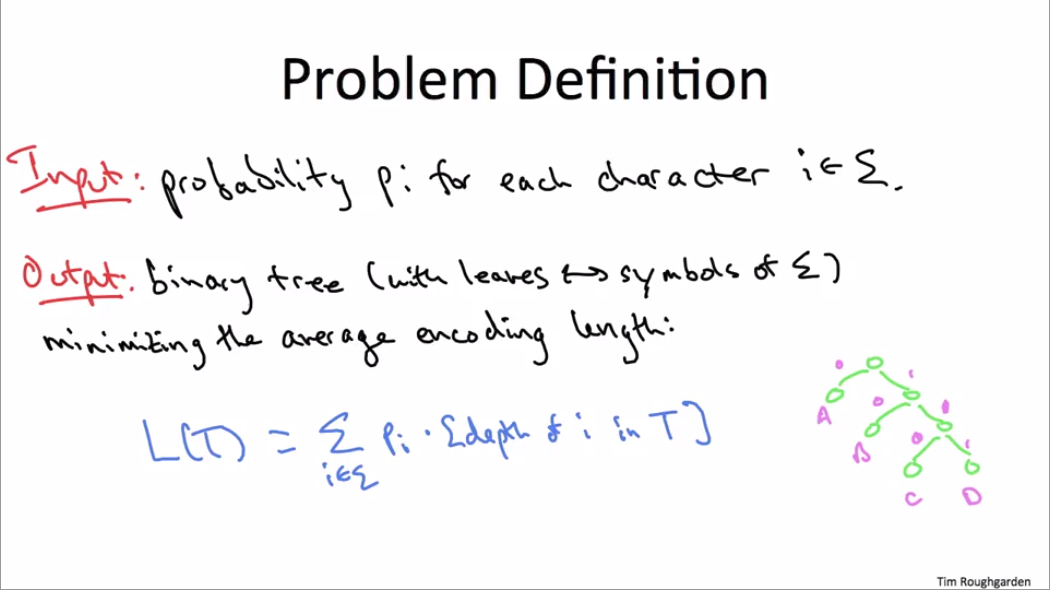 Problem Definition
Input: probability pi for each character i ∈ Σ.
Output: binary tree (with leaves ↔ symbols of Σ)
minimizing the average encoding length:
L(T) = Σ i∈Σ pi · [depth of i in T]
0 1
A 0 1
B 0 1
C D
Tim Roughgarden